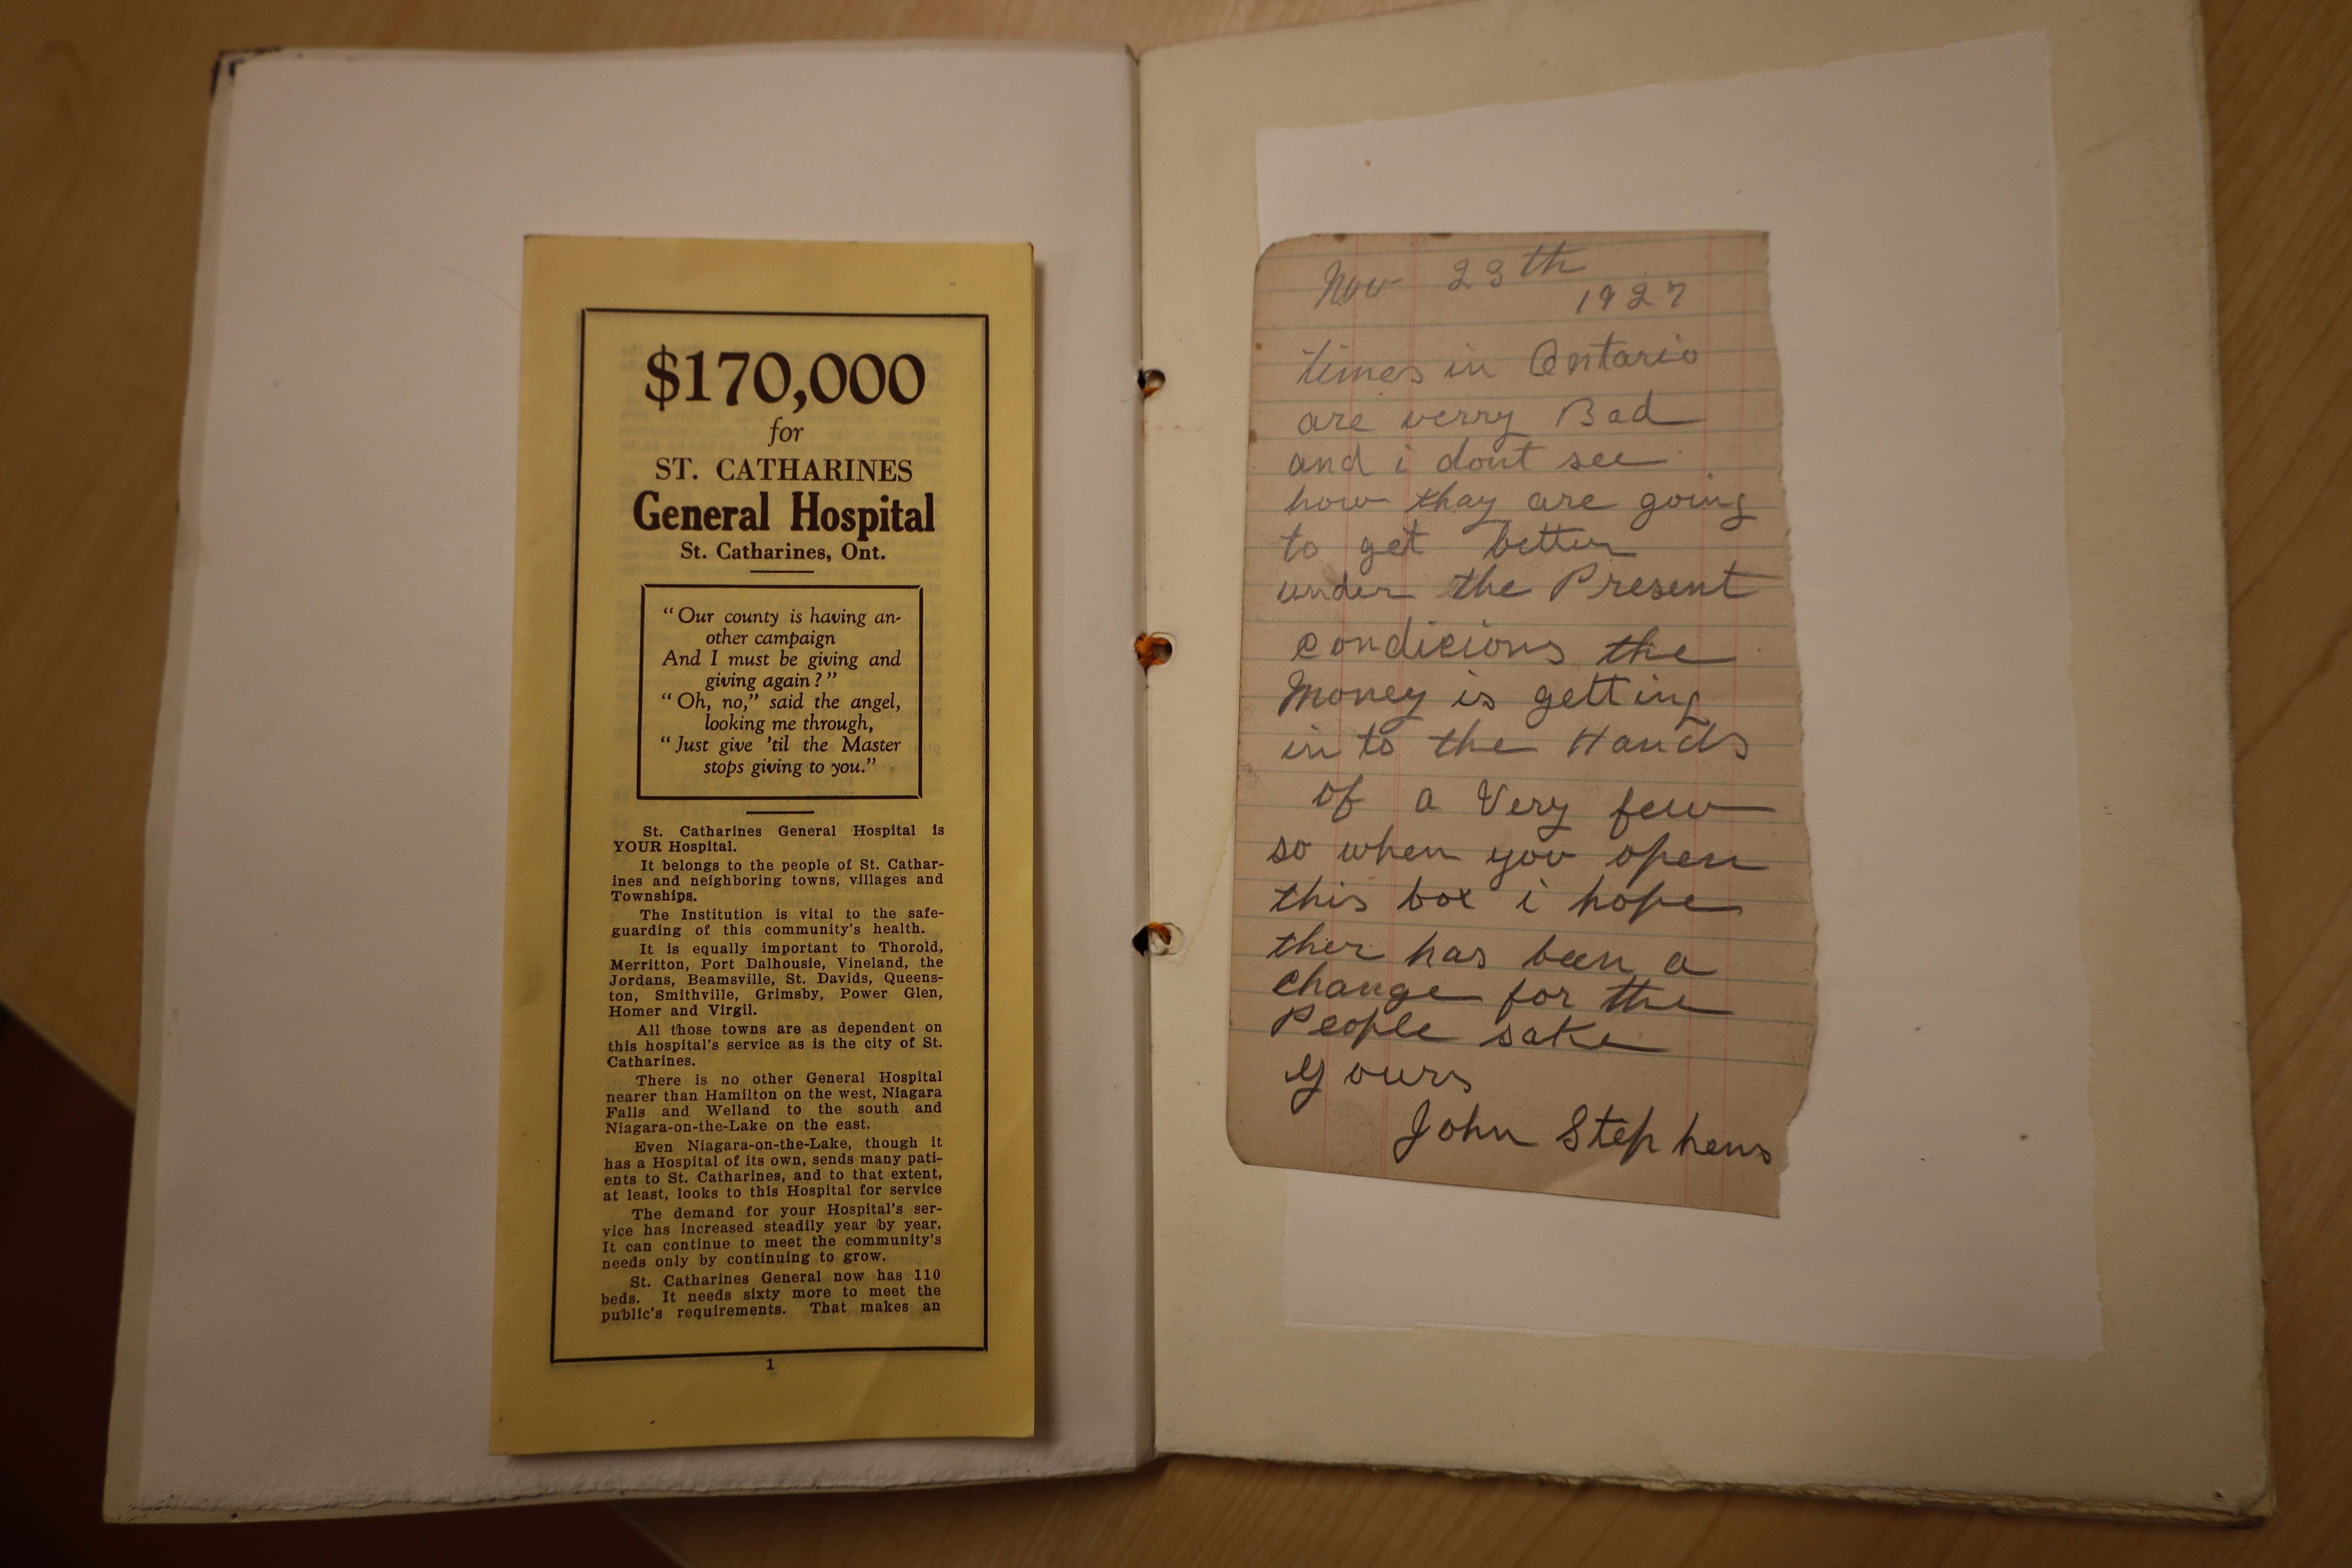 $170,000
for
ST. CATHARINES
General Hospital
St. Catharines, Ont.
“Our county is having an-
other campaign
And I must be giving and
giving again?”
“Oh, no,” said the angel,
looking me through,
“Just give 'til the Master
stops giving to you.”
St. Catharines General Hospital is
YOUR Hospital.
It belongs to the people of St. Cathar-
ines and neighboring towns, villages and
Townships.
The Institution is vital to the safe-
guarding of this community's health.
It is equally important to Thorold,
Merritton, Port Dalhousie, Vineland, the
Jordans, Beamsville, St. Davids, Queens-
ton, Smithville, Grimsby, Power Glen,
Homer and Virgil.
All those towns are as dependent on
this hospital's service as is the city of St.
Catharines.
There is no other General Hospital
nearer than Hamilton on the west, Niagara
Falls and Welland to the south and
Niagara-on-the-Lake on the east.
Even Niagara-on-the-Lake, though it
has a Hospital of its own, sends many pati-
ents to St. Catharines, and to that extent,
at least, looks to this Hospital for service
The demand for your Hospital's ser-
vice has increased steadily year by year.
It can continue to meet the community's
needs only by continuing to grow.
St. Catharines General now has 110
beds. It needs sixty more to meet the
public's requirements. That makes an
1
Nov 23th
1927
times in Ontario
are verry Bad
and i dont see
how thay are going
to get better
under the Present
condicions the
Money is getting
in to the Hands
of a Very few
so when you open
this box i hope
ther has been a
change for the
People sake
Yours
John Stephens